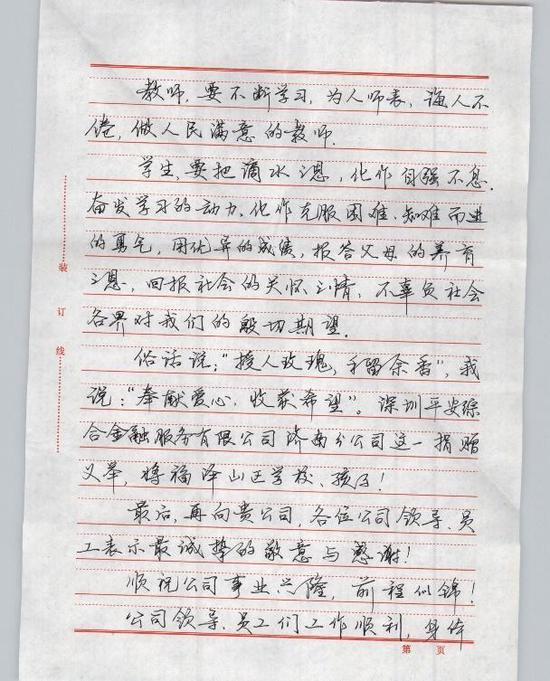 教师，要不断学习，为人师表，诲人不
倦，做人民满意的教师.
学生，要把滴水之恩，化作自强不息.
奋发学习的动力、化作克服困难、知难而进
的勇气，用优异的成绩，报答父母的养育
之恩，回报社会的关怀之情，不辜负社会
各界对我们的殷切期望.
俗话说："授人玫瑰，手留余香"，我
说："奉献爱心，收获希望"。深圳平安综
合金融服务有限公司济南分公司这一捐赠
义举，将福泽山区学校、孩子！
最后，再向贵公司，各位公司领导、员
工表示最诚挚的敬意与感谢！
顺祝公司事业兴隆，前程似锦！
公司领导、员工们工作顺利，身体
装
订
线
第 页